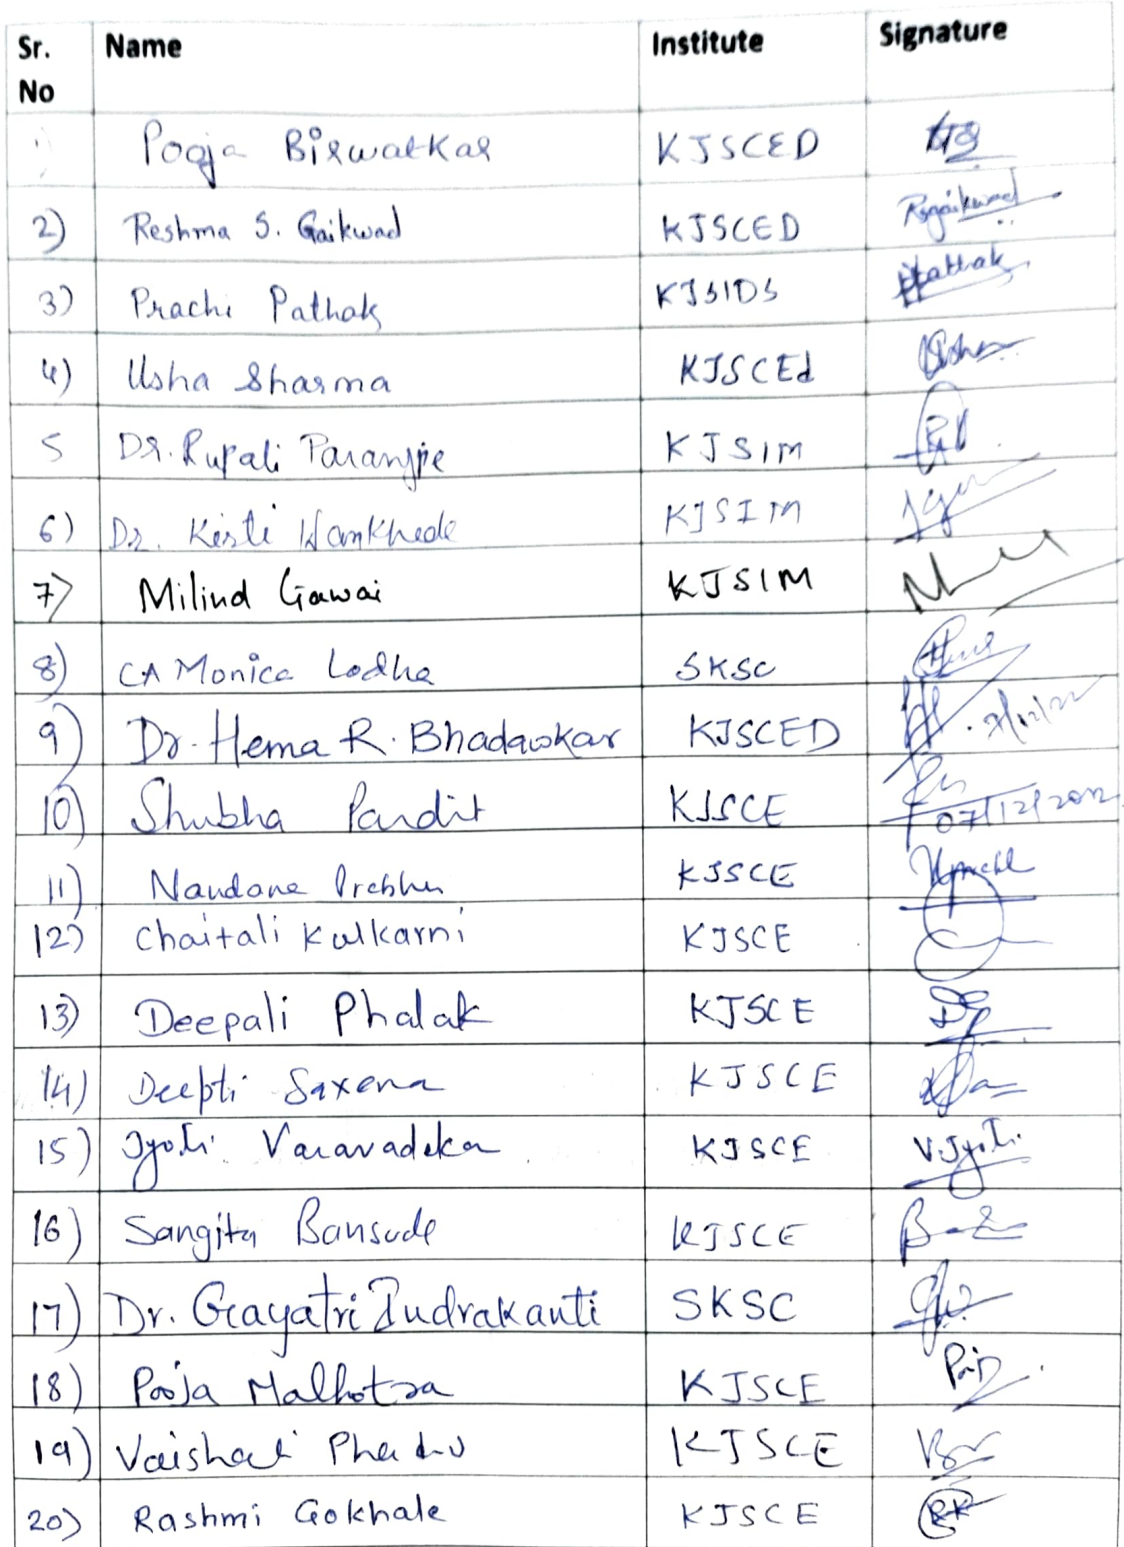 Sr. No Name Institute Signature
1) Pooja Birwatkar KJSCED
2) Reshma S. Gaikwad KJSCED Rsgaikwad
3) Prachi Pathak KJSIDS Pathak
4) Usha Sharma KJSCEd Usha
5 Dr. Rupali Paranjpe KJSIM
6) Dr. Kirti Wankhede KJSIM
7) Milind Gawai KJSIM
8) CA Monica Lodha SKSC
9) Dr. Hema R. Bhadawkar KJSCED 7/12/22
10) Shubha Pandit KJSCE 07/12/2022
11) Nandana Prabhu KJSCE
12) Chaitali Kulkarni KJSCE
13) Deepali Phalak KJSCE
14) Deepti Saxena KJSCE
15) Jyoti Varavadekar KJSCE V.Jyoti
16) Sangita Bansode KJSCE
17) Dr. Gayatri Indrakanti SKSC
18) Pooja Malhotra KJSCE
19) Vaishali KJSCE
20) Rashmi Gokhale KJSCE